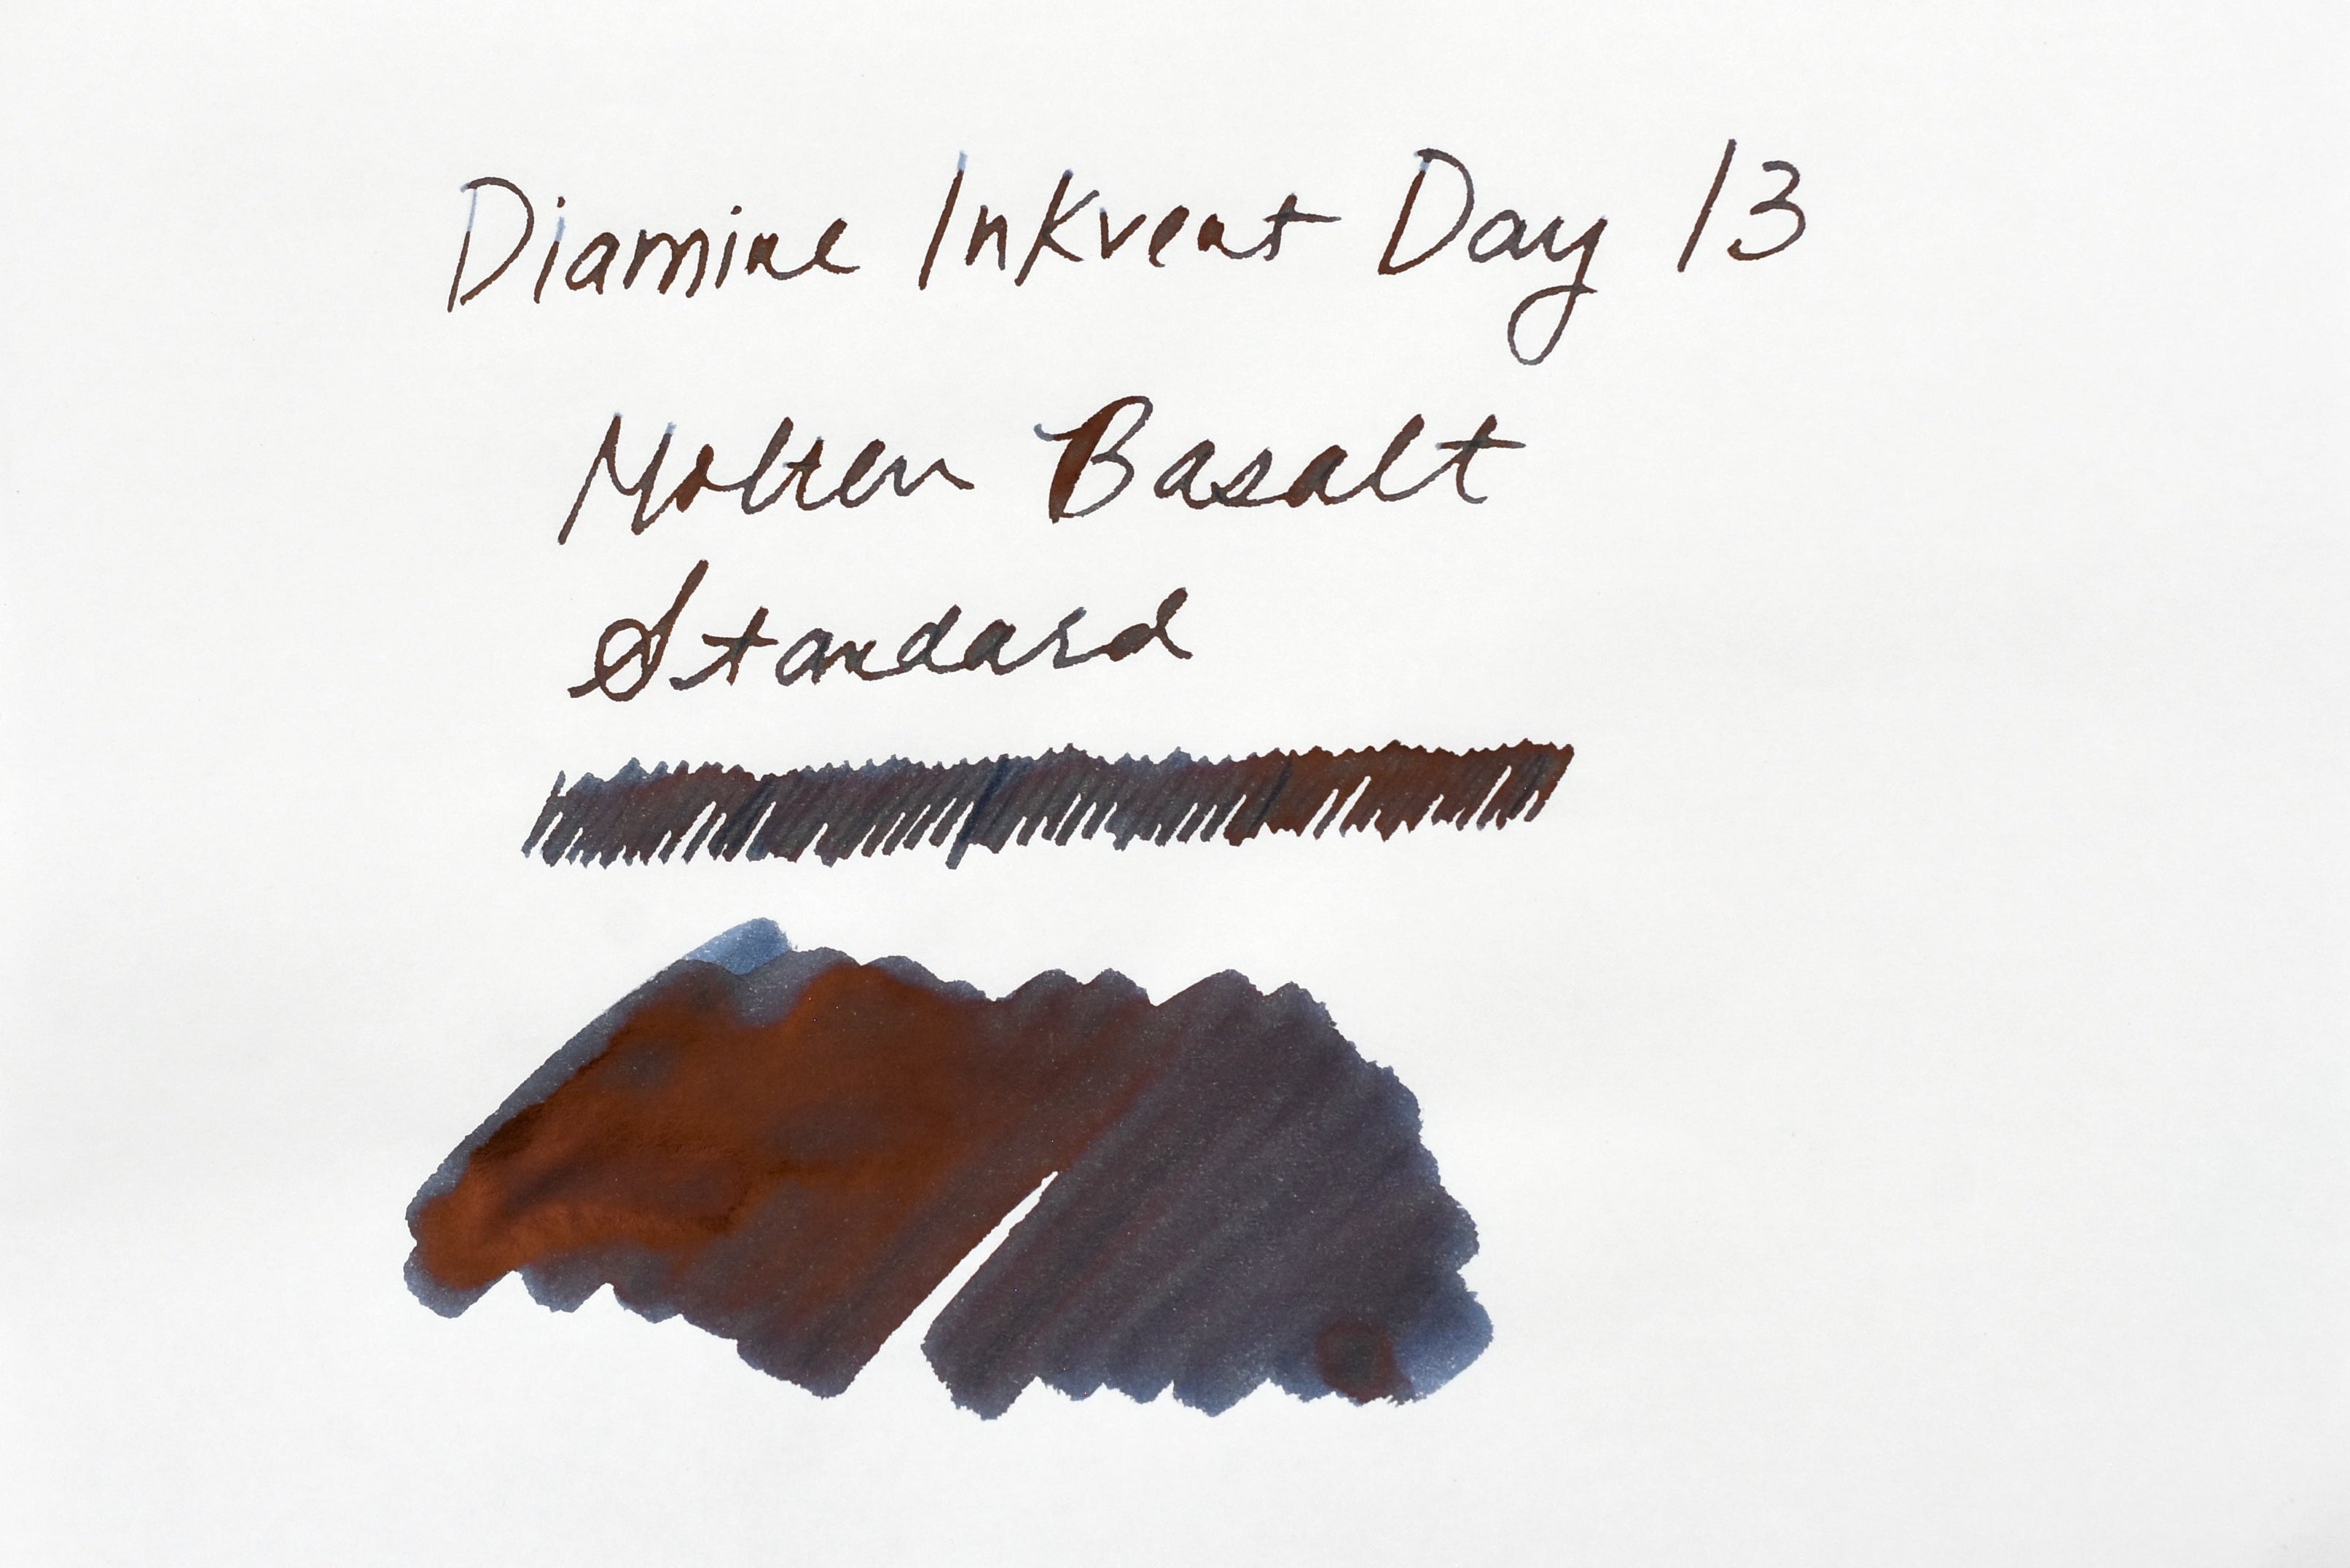 Diamine Inkvent Day 13
Molten Basalt
Standard